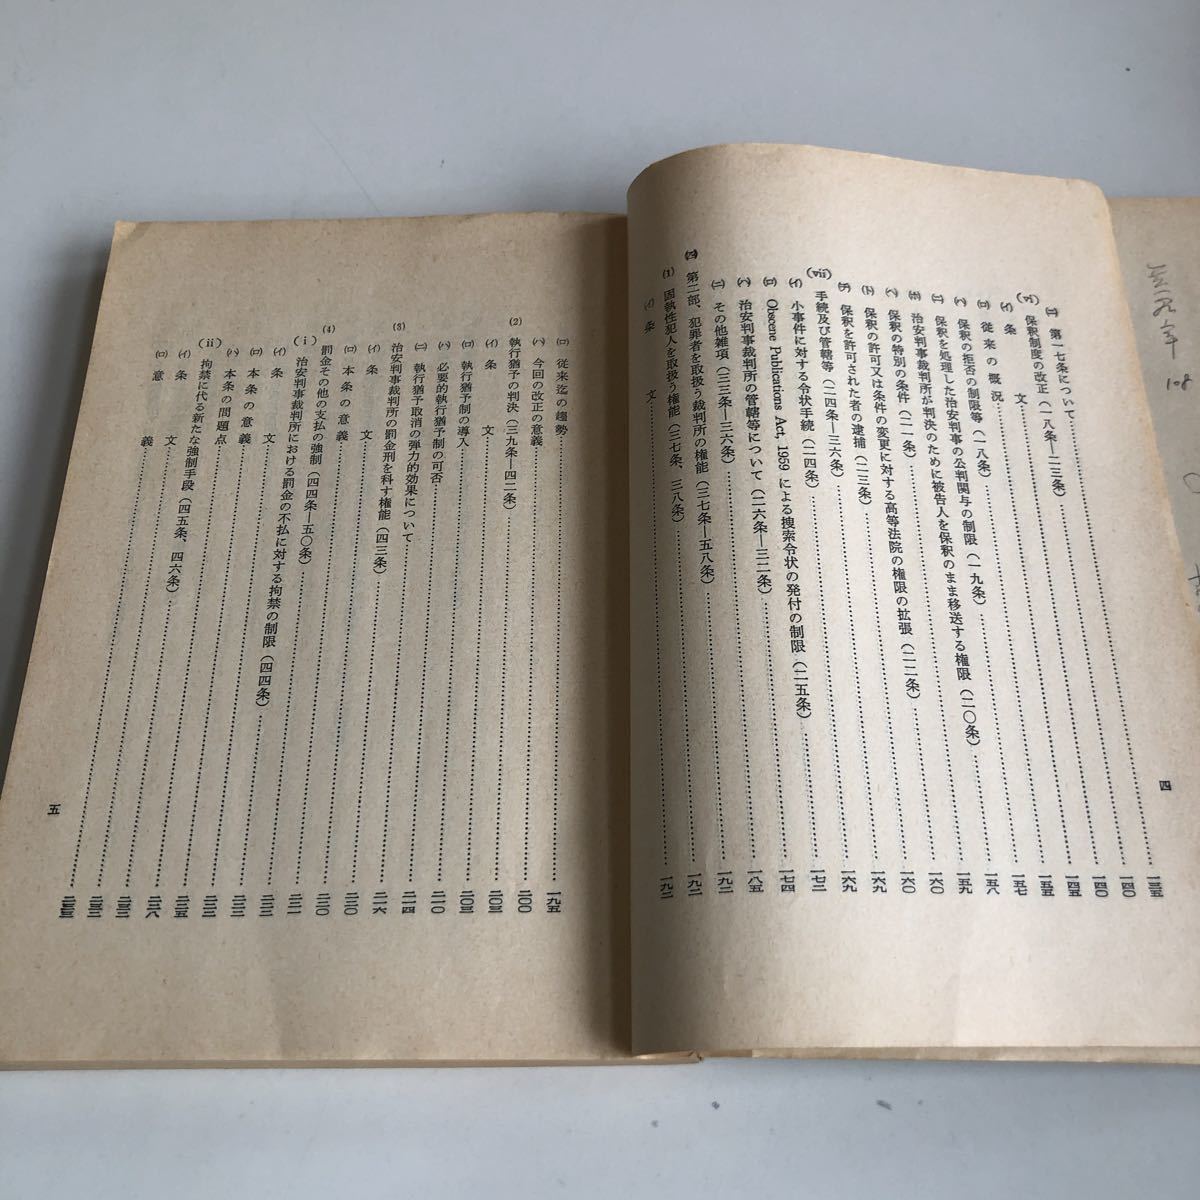 (ロ) 第一七条について……一三五
(vi) 保釈制度の改正(一八条―二三条)……一四〇
(イ) 条文……一四〇
(ロ) 従来の概況……一四五
(ハ) 保釈の拒否の制限等(一八条)……一五五
保釈を処理した治安判事の公判関与の制限(一九条)……一五七
治安判事裁判所が判決のために被告人を保釈のまま移送する権限(二〇条)……一五八
(ホ) 保釈の特別の条件(二一条)……一五九
(ヘ) 保釈の許可又は条件の変更に対する高等法院の権限の拡張(二二条)……一六〇
(ト) 保釈を許可された者の逮捕(二三条)……一六〇
(vii) 手続及び管轄等(二四条―三六条)……一六九
(イ) 小事件に対する令状手続(二四条)……一六九
(ロ) Obscene Publications Act, 1959 による捜索令状の発付の制限(二五条)……一七三
(ハ) 治安判事裁判所の管轄等について(二六条―三二条)……一七四
(ニ) その他雑項(三三条―三六条)……一八五
(四) 第二部、犯罪者を取扱う裁判所の権能(三七条―五八条)……一九二
(1) 固執性犯人を取扱う権能(三七条、三八条)……一九二
(イ) 条文……一九二
四
(ロ) 従来迄の趨勢……一九五
(ハ) 今回の改正の意義……二〇〇
(2) 執行猶予の判決(三九条―四二条)……二〇三
(イ) 条文……二〇三
(ロ) 執行猶予制の導入……二一〇
(ハ) 必要的執行猶予制の可否……二一四
(ニ) 執行猶予取消の弾力的効果について……二一六
(3) 治安判事裁判所の罰金刑を科す権能(四三条)……二二〇
(イ) 条文……二二〇
(ロ) 本条の意義……二二一
(4) 罰金その他の支払の強制(四四条―五〇条)
(i) 治安判事裁判所における罰金の不払に対する拘禁の制限(四四条)
(イ) 条文
(ロ) 本条の意義
(ハ) 本条の問題点
(ii) 拘禁に代る新たな強制手段(四五条、四六条)
(イ) 条文
(ロ) 意義
五